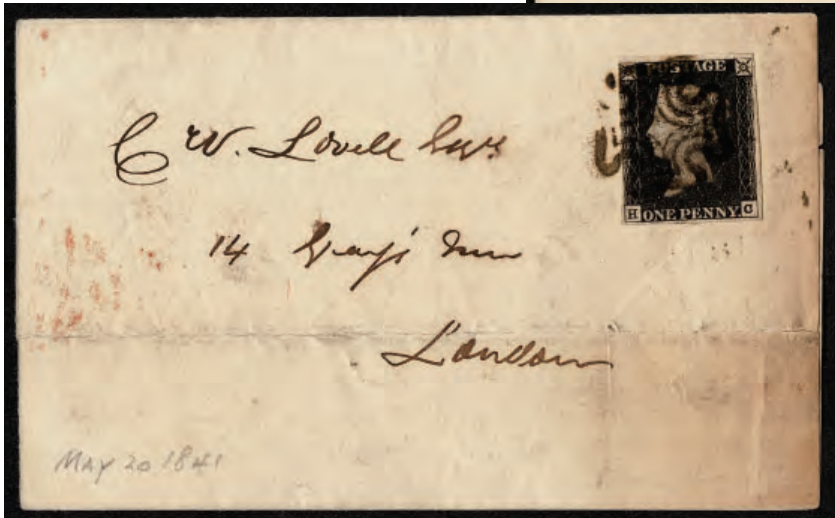 POSTAGE
H ONE PENNY. C
C W. Lovell Esqre
14 Gray's Inn
London
MAY 20 1841